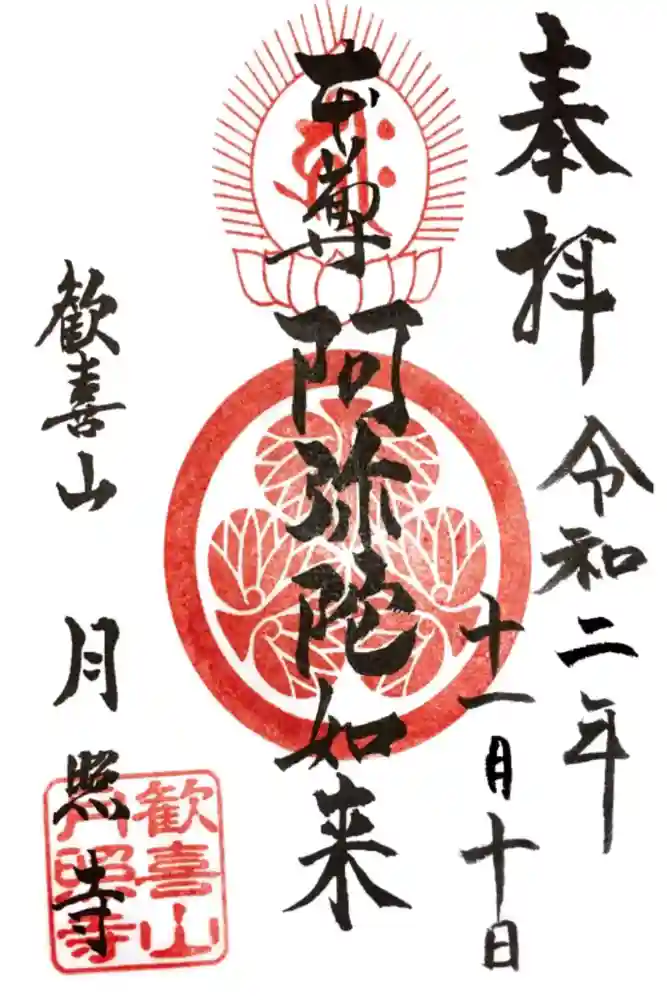 奉拝
令和二年
十一月十日
本尊
阿弥陀如来
歓喜山
月照寺
歓喜山
月照寺